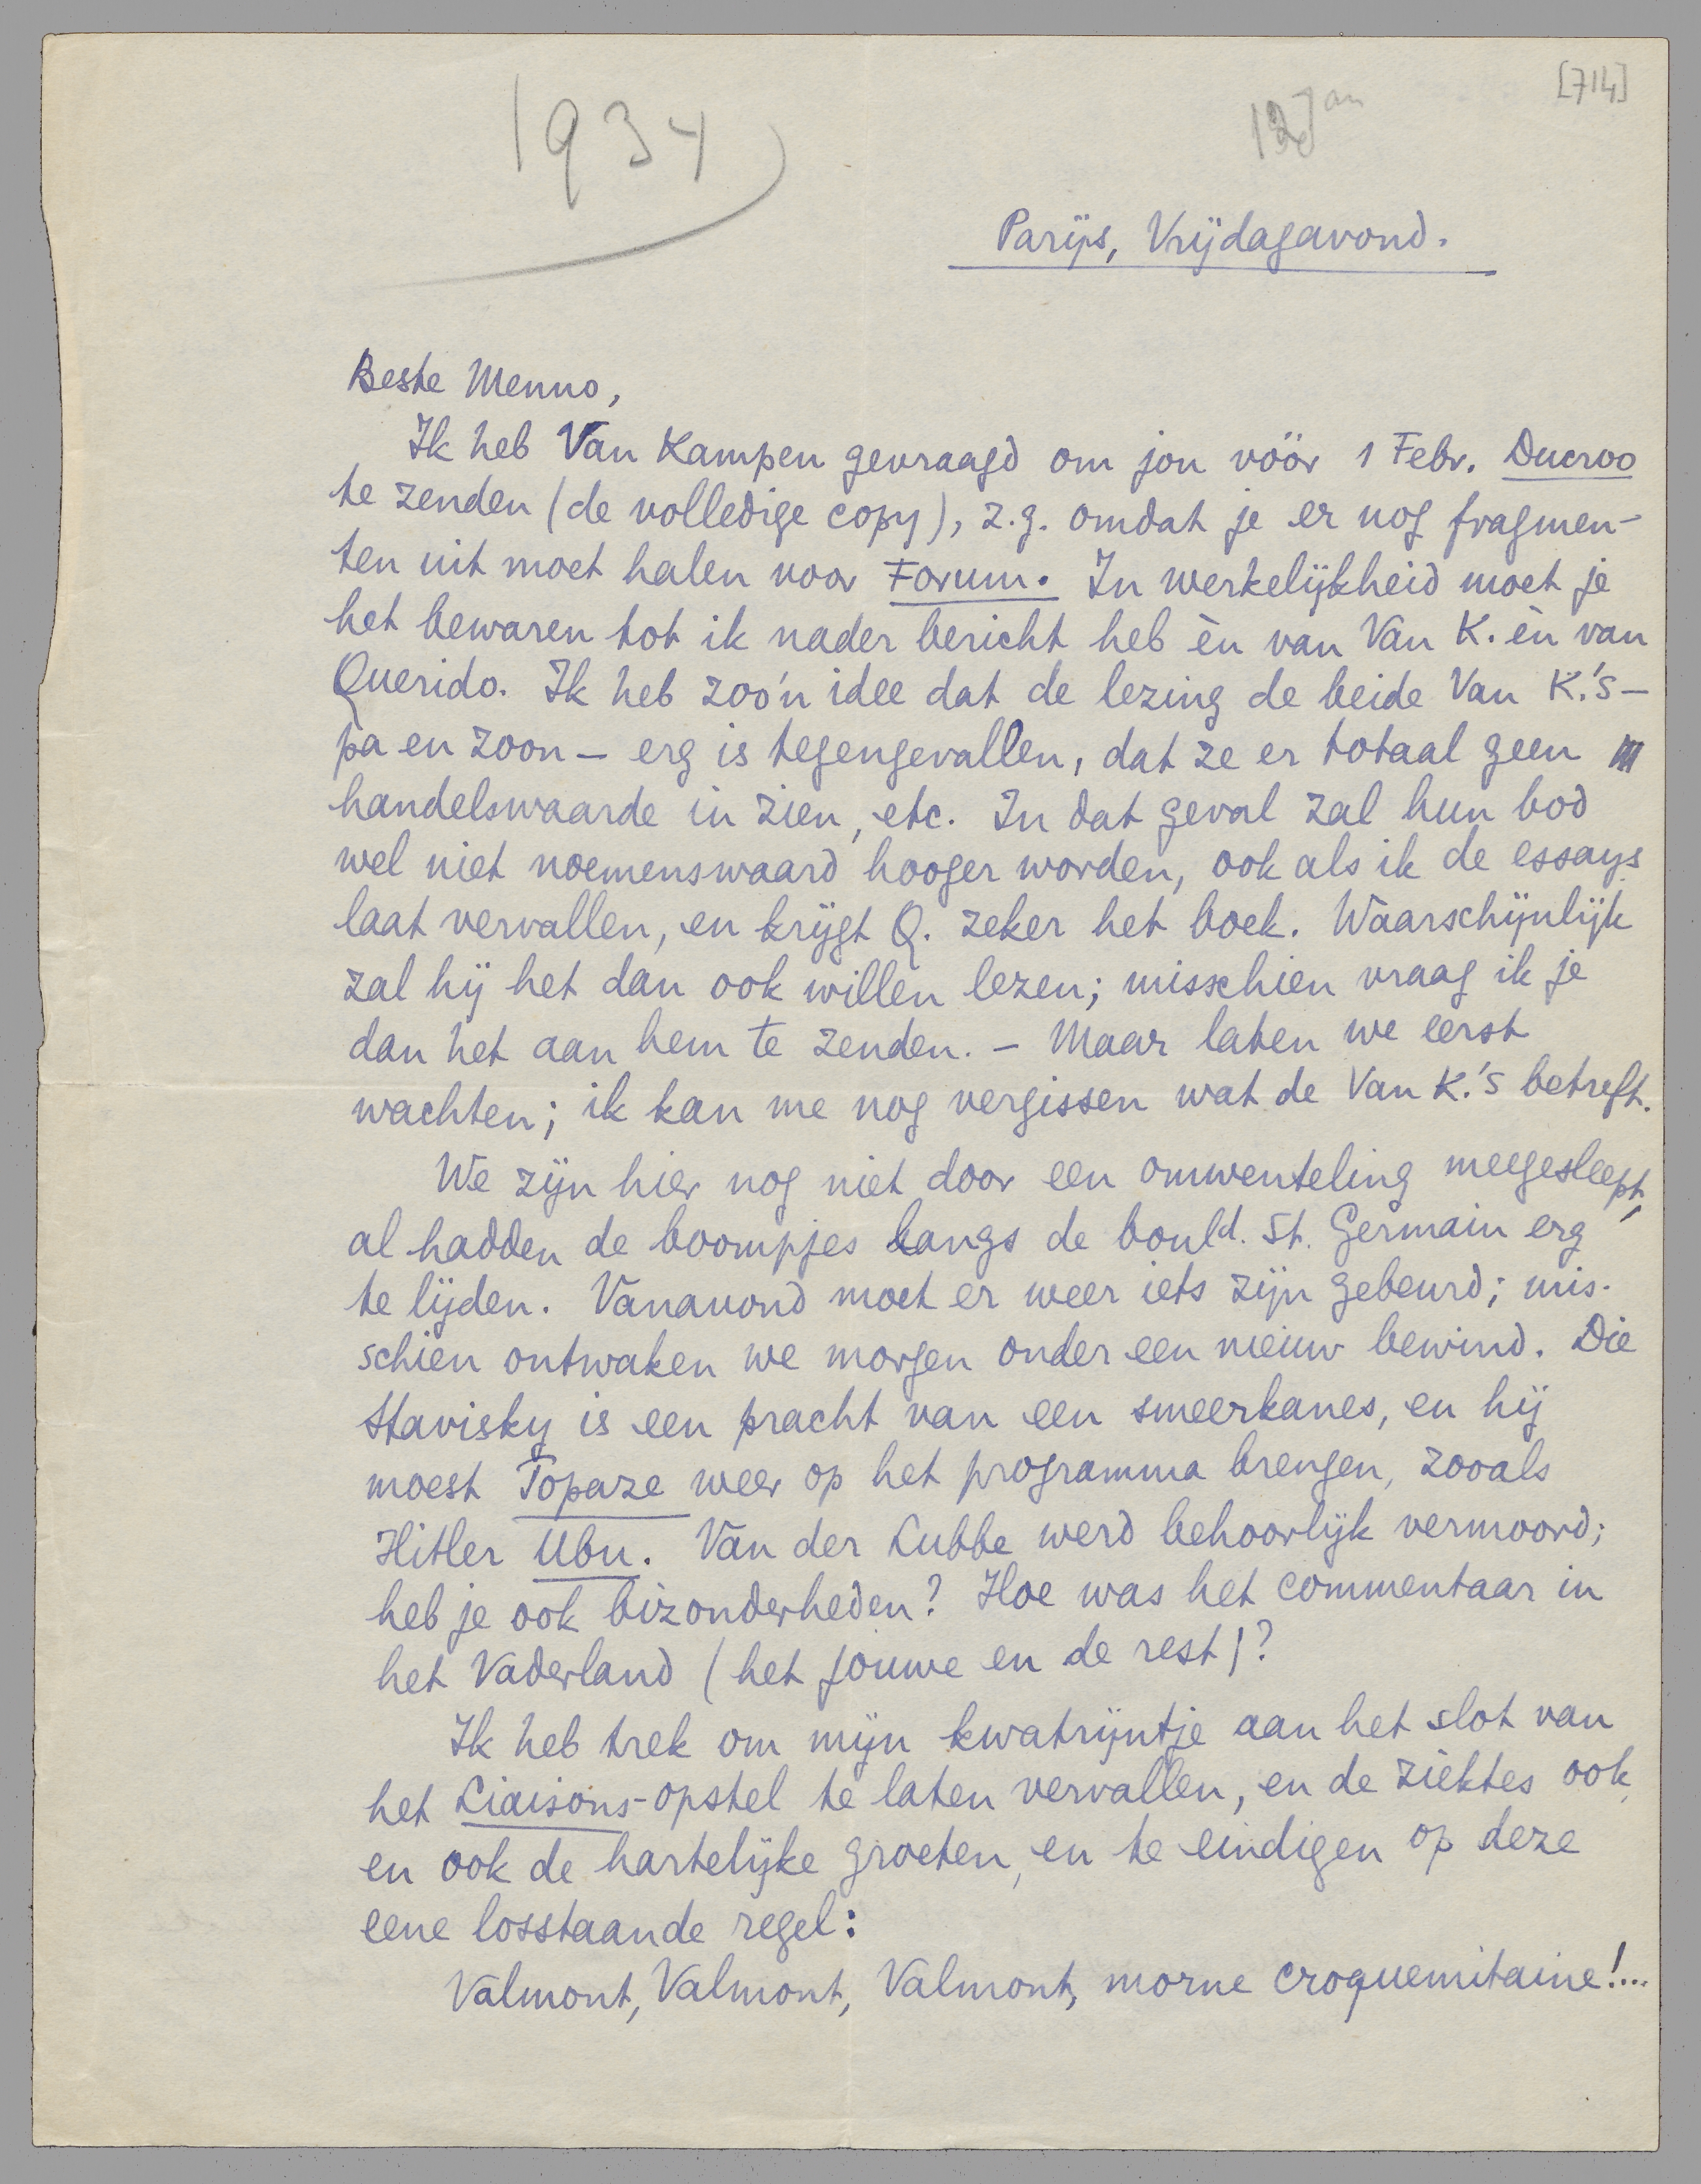 [714]
1934
12 Jan
Parijs, Vrijdagavond.
Beste Menno,
Ik heb Van Kampen gevraagd om jou vóór 1 Febr. Ducroo
te zenden (de volledige copy), z.g. omdat je er nog fragmen-
ten uit moet halen voor Forum. In werkelijkheid moet je
het bewaren tot ik nader bericht heb èn van Van K. èn van
Querido. Ik heb zoo'n idee dat de lezing de beide Van K.'s –
pa en zoon – erg is tegengevallen, dat ze er totaal geen
handelswaarde in zien, etc. In dat geval zal hun bod
wel niet noemenswaard hooger worden, ook als ik de essays
laat vervallen, en krijgt Q. zeker het boek. Waarschijnlijk
zal hij het dan ook willen lezen; misschien vraag ik je
dan het aan hem te zenden. – Maar laten we eerst
wachten; ik kan me nog vergissen wat de Van K.'s betreft.
We zijn hier nog niet door een omwenteling meegesleept,
al hadden de boompjes langs de bould. St. Germain erg
te lijden. Vanavond moet er weer iets zijn gebeurd; mis-
schien ontwaken we morgen onder een nieuw bewind. Die
Stavisky is een pracht van een smeerkanes, en hij
moest Topaze weer op het programma brengen, zooals
Hitler Ubu. Van der Lubbe werd behoorlijk vermoord;
heb je ook bizonderheden? Hoe was het commentaar in
het Vaderland (het jouwe en de rest)?
Ik heb trek om mijn kwatrijntje aan het slot van
het Liaisons-opstel te laten vervallen, en de ziektes ook,
en ook de hartelijke groeten, en te eindigen op deze
eene losstaande regel:
Valmont, Valmont, Valmont, morne croquemitaine!...